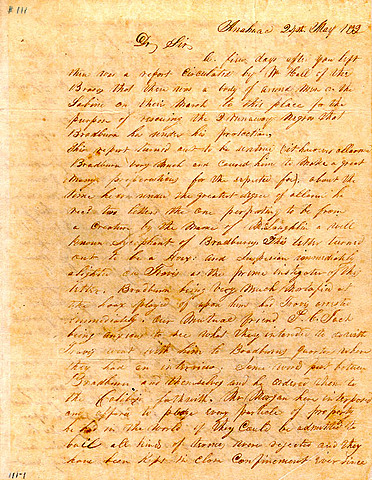 # 111
Anahuac 24th May 1832
Dr Sir
A few days after you left
there was a report circulated by Wm Hall of the
Brazos that there was a body of armed Men on the
Sabine on their March to this place for the
purpose of rescuing the 2 Runaway Negros that
Bradburn has under his protection
This report turned out to be
Bradburn very Much and caused him to Make a great
Many preparations for the expected foe, about the
time he was under the greatest degree of allarm he
two letters the one purporting to be from
a by the Name of McLaughlin a well
known Sycophant of Bradburns This letter turned
out to be a hoax and Suspicion immediately
alighted on Travis as the prime instigator of the
letter. Bradburn being very Much
the hoax played of upon him had Travis arrested
immediately our Mutual friend P. C. Jack
being anxious to see what they intended to do with
Travis went with him to Bradburns quarters where
they had an interview, Some words past between
Bradburn and themselves and he ordered them to
the forthwith. Mr Morgan here interposed
and offered to pledge every particle of property
he had in the world if they could be admitted to
bail all kind of were rejected and they
have been kept in close confinement ever since